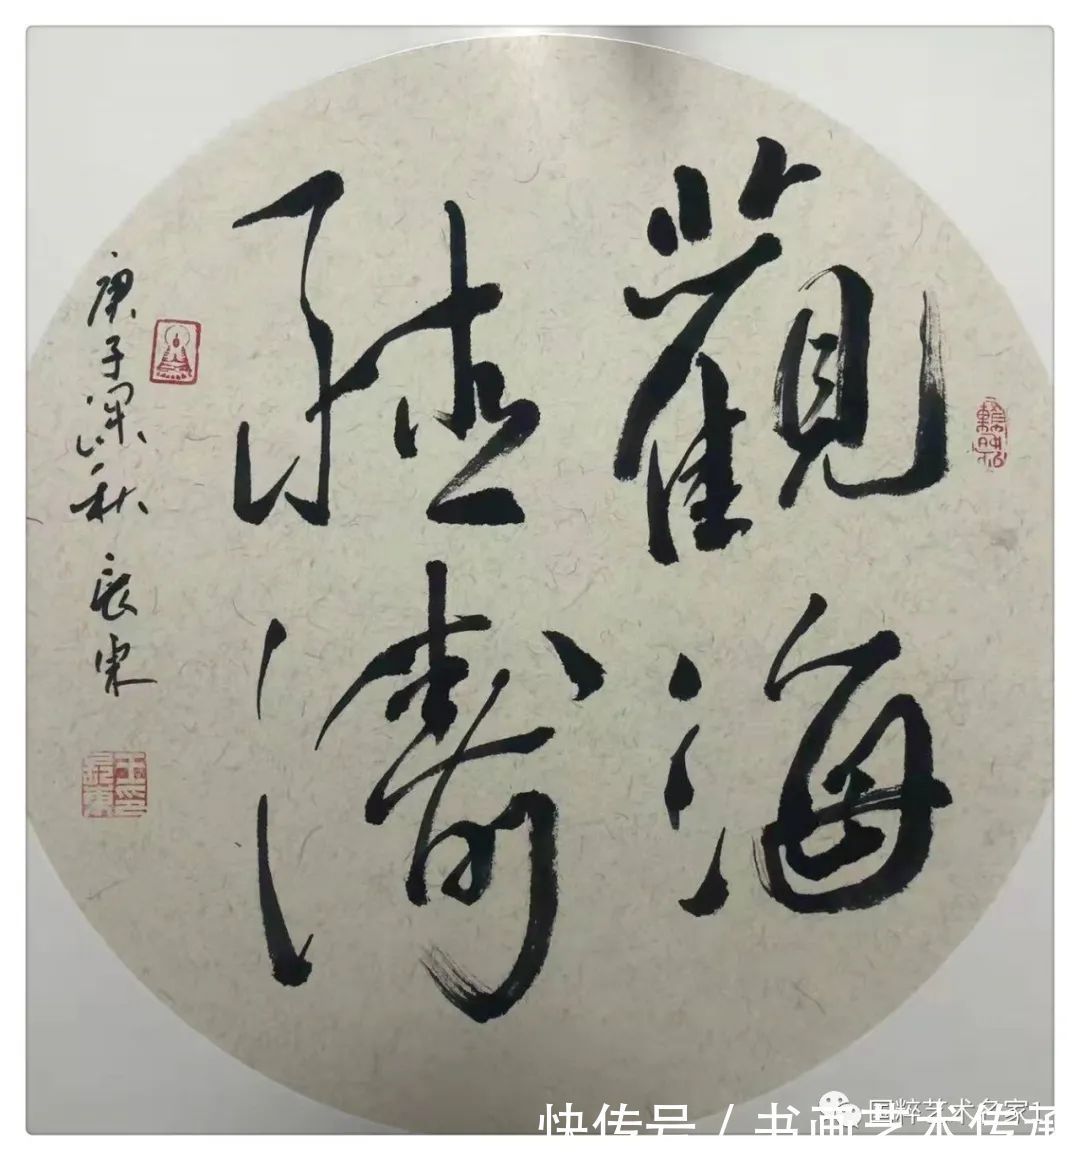 觀海
聽濤
庚子深秋
国粹艺术名家1
快传号 / 书画艺术传承